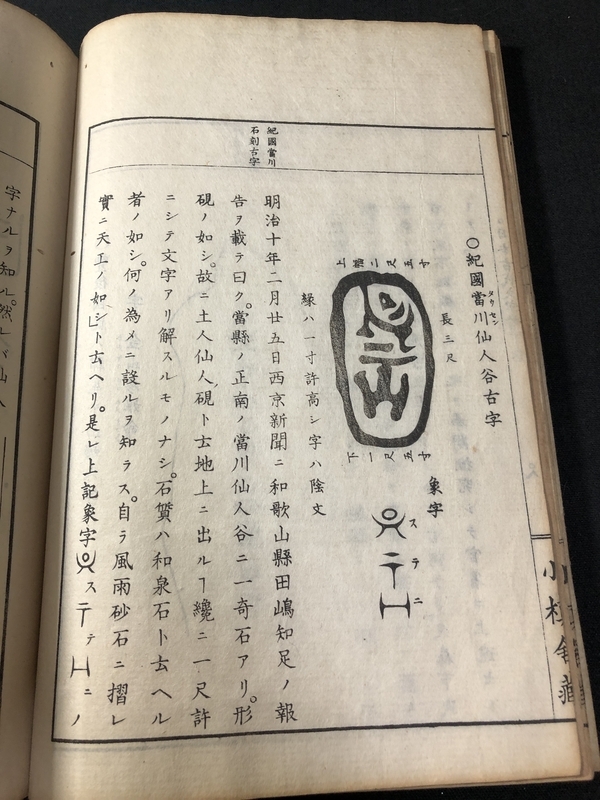 紀國當川
石刻古字
〇紀國當川仙人谷古字
タウセン
長三尺
上幅二尺五寸
下二尺五寸
緣ハ一寸許高シ字ハ陰文
象字
ステニ
明治十年二月廿五日西京新聞ニ和歌山縣田嶋知足ノ報
告ヲ載テ曰ク。當縣ノ正南ノ當川仙人谷ニ一奇石アリ。形
硯ノ如シ。故ニ土人仙人硯ト玄地上ニ出ルヿ纔ニ一尺許
ニシテ文字アリ解スルモノナシ。石質ハ和泉石ト玄ヘル
者ノ如シ。何ノ為メニ設ルヲ知ラス。自ラ風雨砂石ニ摺レ
實ニ天工ノ如シト玄ヘリ。是レ上記象字ステニノ
字ナルヲ知ル。然レバ仙人